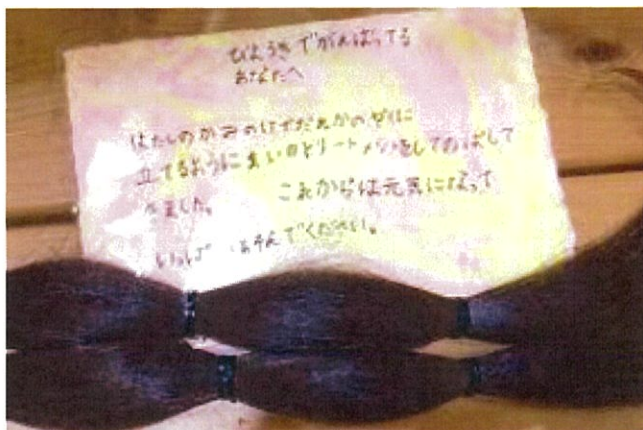 びょうきでがんばってる
あなたへ
わたしのかみのけがだれかのやくに
立てるようにまい日トリートメントをしてのばして
きました。 これからは元気になって
いっぱいあそんでください。